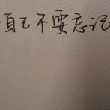 自己不要忘记